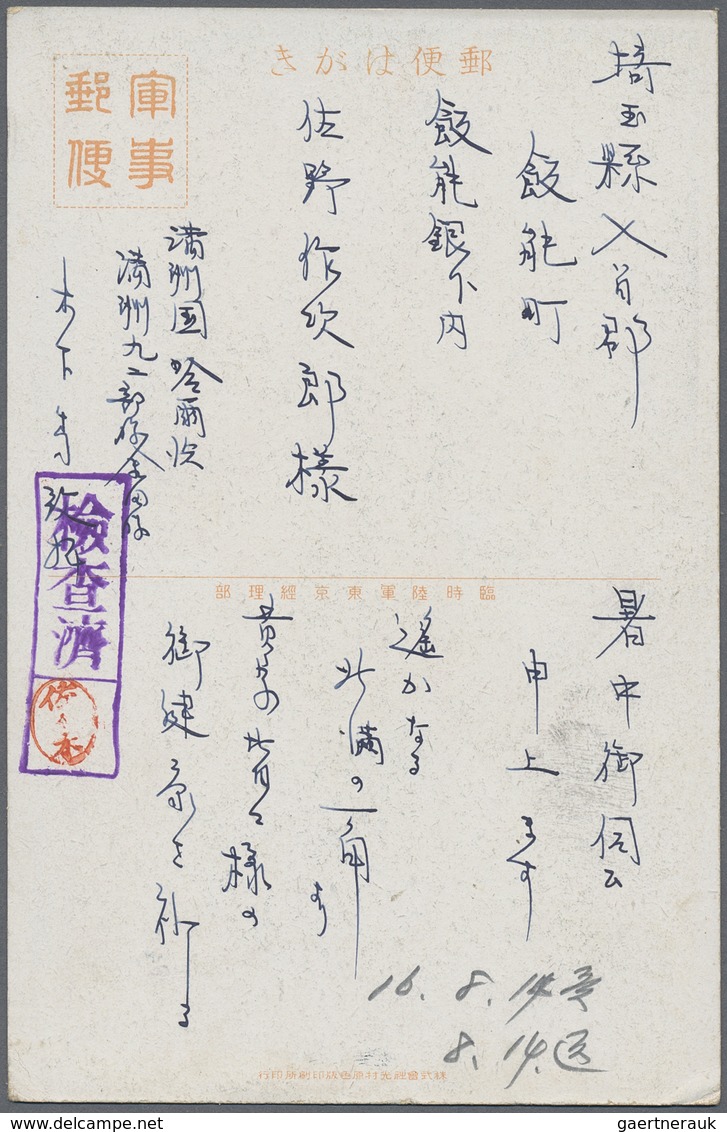 郵便はがき
軍事
郵便
埼玉縣入間郡
飯能町
飯能銀下内
佐野作次郎様
満洲国哈爾浜
満洲九二部隊
木下
検査濟
佐々木
臨時陸軍東京經理部
暑中御伺ひ
申上ます
遙かなる
北満の一角より
貴家の皆々様の
御健康を祈る
16. 8. 14
8. 14. 送
株式會社光村原色版印刷所印行
gaertnerauk